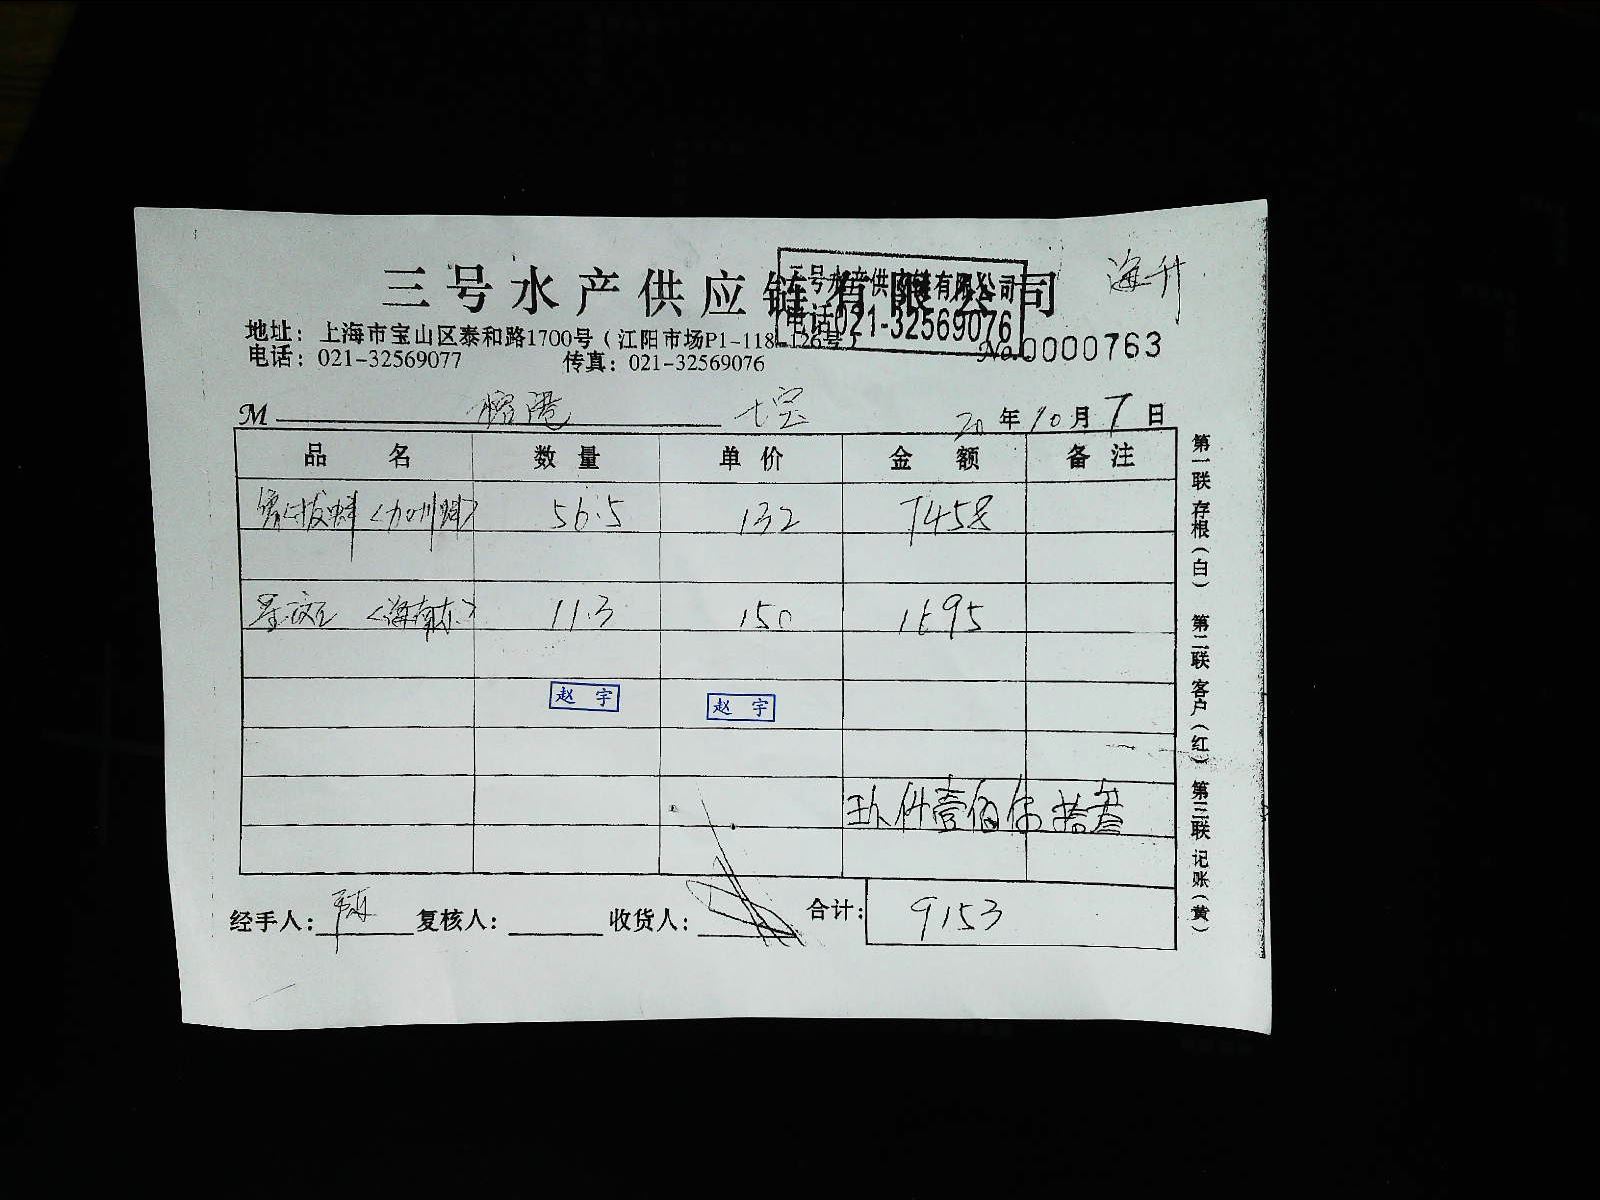 三号水产供应链有限公司
三号水产供应链有限公司
电话021-32569076
海升
地址：上海市宝山区泰和路1700号（江阳市场P1-118-126号）
电话：021-32569077 传真：021-32569076
No.0000763
M 榕港 七宝 20年10月7日
品名 数量 单价 金额 备注
象拔蚌〈加州蚌〉 56.5 132 7458
〈海南东〉 11.3 150 1695
赵宇 赵宇
玖仟壹佰伍拾叁
经手人： 复核人： 收货人： 合计： 9153
第一联 存根（白） 第二联 客户（红） 第三联 记账（黄）